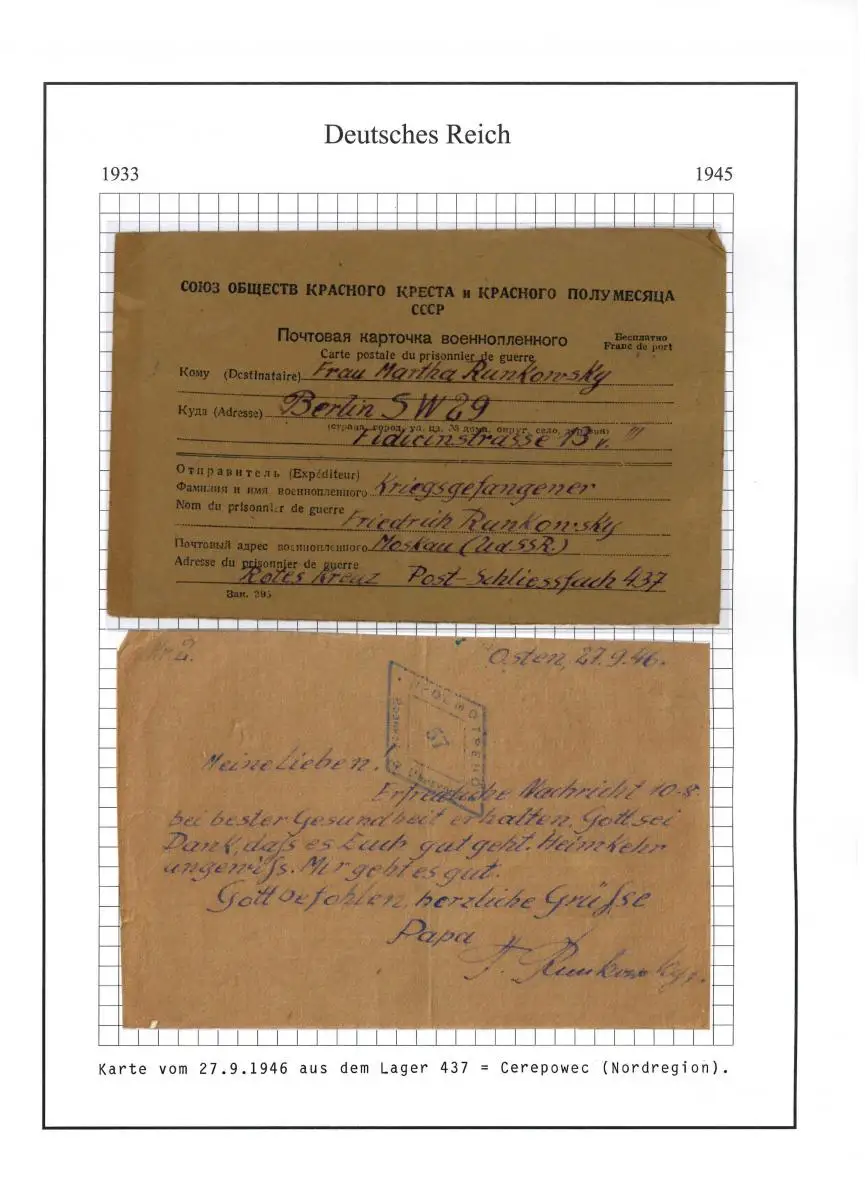 Deutsches Reich
1933 1945
СОЮЗ ОБЩЕСТВ КРАСНОГО КРЕСТА и КРАСНОГО ПОЛУМЕСЯЦА
СССР
Почтовая карточка военнопленного
Бесплатно
Carte postale du prisonnier de guerre
Franc de port
Кому (Destinataire) Frau Martha Runkowsky
Куда (Adresse) Berlin SW 29
(страна, город, ул., № дома, округ, село, деревня)
Fidicinstrasse 13 v. III
Отправитель (Expéditeur)
Фамилия и имя военнопленного Kriegsgefangener
Nom du prisonnier de guerre
Friedrich Runkowsky
Почтовый адрес военнопленного Moskau (UdSSR.)
Adresse du prisonnier de guerre
Rotes Kreuz Post-Schliessfach 437
Зак. 295
Nr 2. Osten, 27.9.46.
ПРОСМОТРЕНО
67
Meine Lieben!
Erfreuliche Nachricht 10.8.
bei bester Gesundheit erhalten. Gott sei
Dank, dass es Euch gut geht. Heimkehr
ungewiss. Mir geht es gut.
Gott befohlen, herzliche Grüsse
Papa
F. Runkowsky.
Karte vom 27.9.1946 aus dem Lager 437 = Cerepowec (Nordregion).